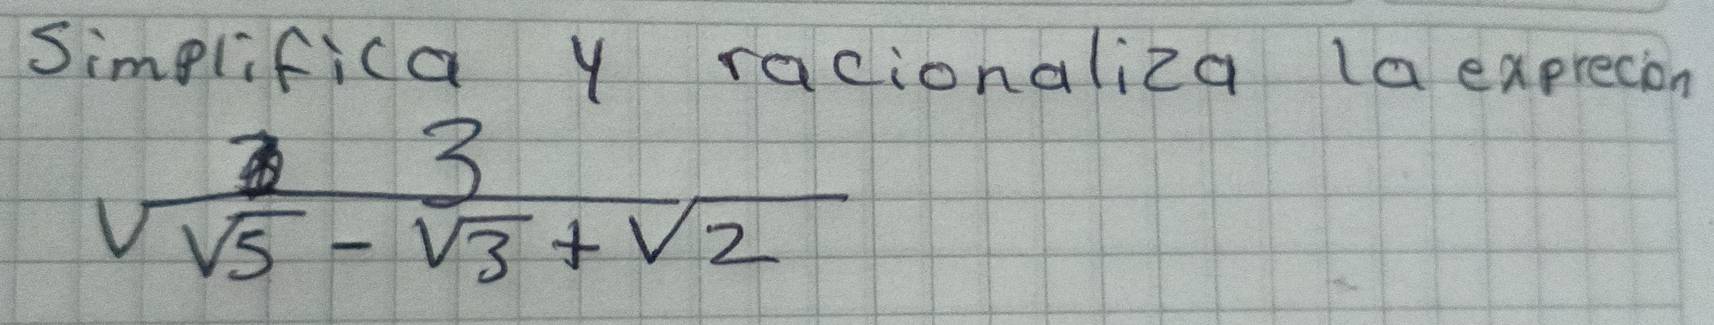 Simplifica y racionaliza la exprecion
3
√√5 - √3 + √2